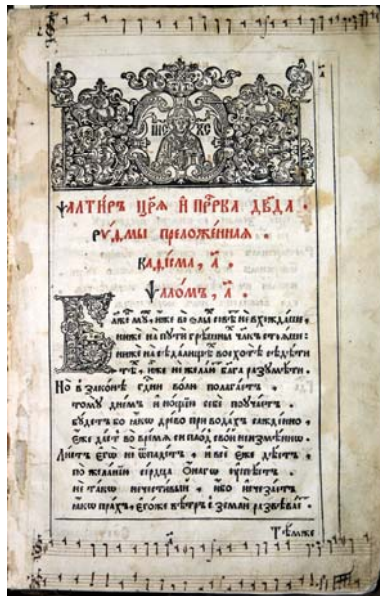 ІИС ХС
Ѱалти́рь цр҃ѧ и҆ прⷪ҇рка дв҃да .
риѳмы преложе́ннаѧ .
каѳі́сма, а҃ .
Ѱало́мъ, а҃ .
Бл҃же́нъ мꙋ́ ..., и҆́же во ѕлы́ ... совѣ́ ... не вхожда́ше,
ниже на пути грѣ́шны ... человѣ́къ стоѧ́ше :
ниже на сѣда́лищи ... восхотѣ̀ сѣдѣ́ти
тѣ́ ..., и҆́же не желаю ... бл҃га разꙋмѣ́ти .
Но в̾ зако́нѣ гдⷭ҇ни во́лю полага́етъ .
томꙋ̀ днемъ и҆ но́щїю себѐ поуча́етъ .
бꙋ́детъ бо ꙗ҆́кѡ дре́во при вода́хъ сажде́нно ,
є҆́же дае́тъ во вре́мѧ си пло́д сво́й неизмѣ́ннѡ .
Ли́стъ є҆гѡ̀ не ѿпаде́тъ , и҆ всѐ є҆́же дѣ́етъ ,
по жела́нїю се́рдца ѻ҆́нагѡ успѣ́етъ .
не та́кѡ нечести́вый , и҆́бо и҆счеза́етъ
ꙗ҆́кѡ пра́хъ, є҆го́же вѣ́тръ с̾ землѝ развѣва́етъ
Тѣ́мже